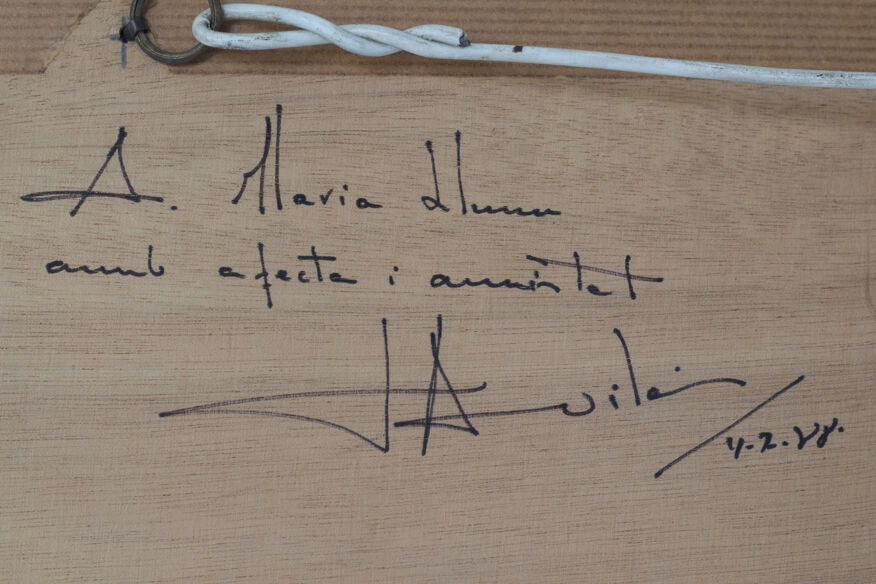 A. Maria Lluna
amb afecte i amistat
J Avilà
4.2.88.